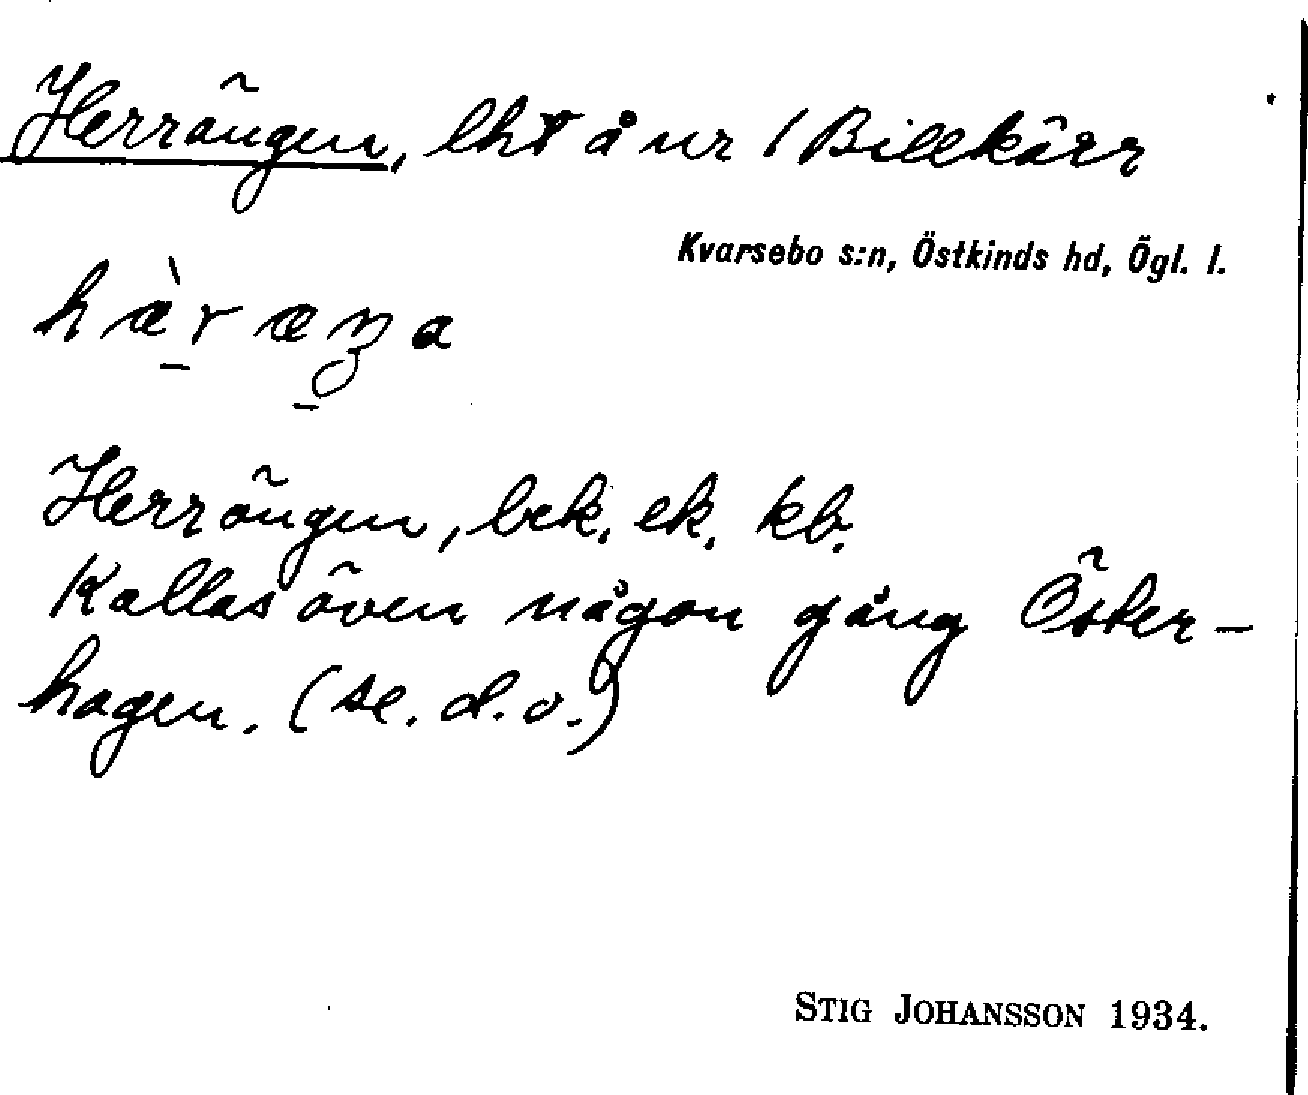 Herrängen, lht å nr 1 Billkärr
Kvarsebo s:n, Östkinds hd, Ögl. l.
Herrängen, bek. ek. kb.
Kallas även någon gång Öster-
hagen. (se. d.o.)
STIG JOHANSSON 1934.